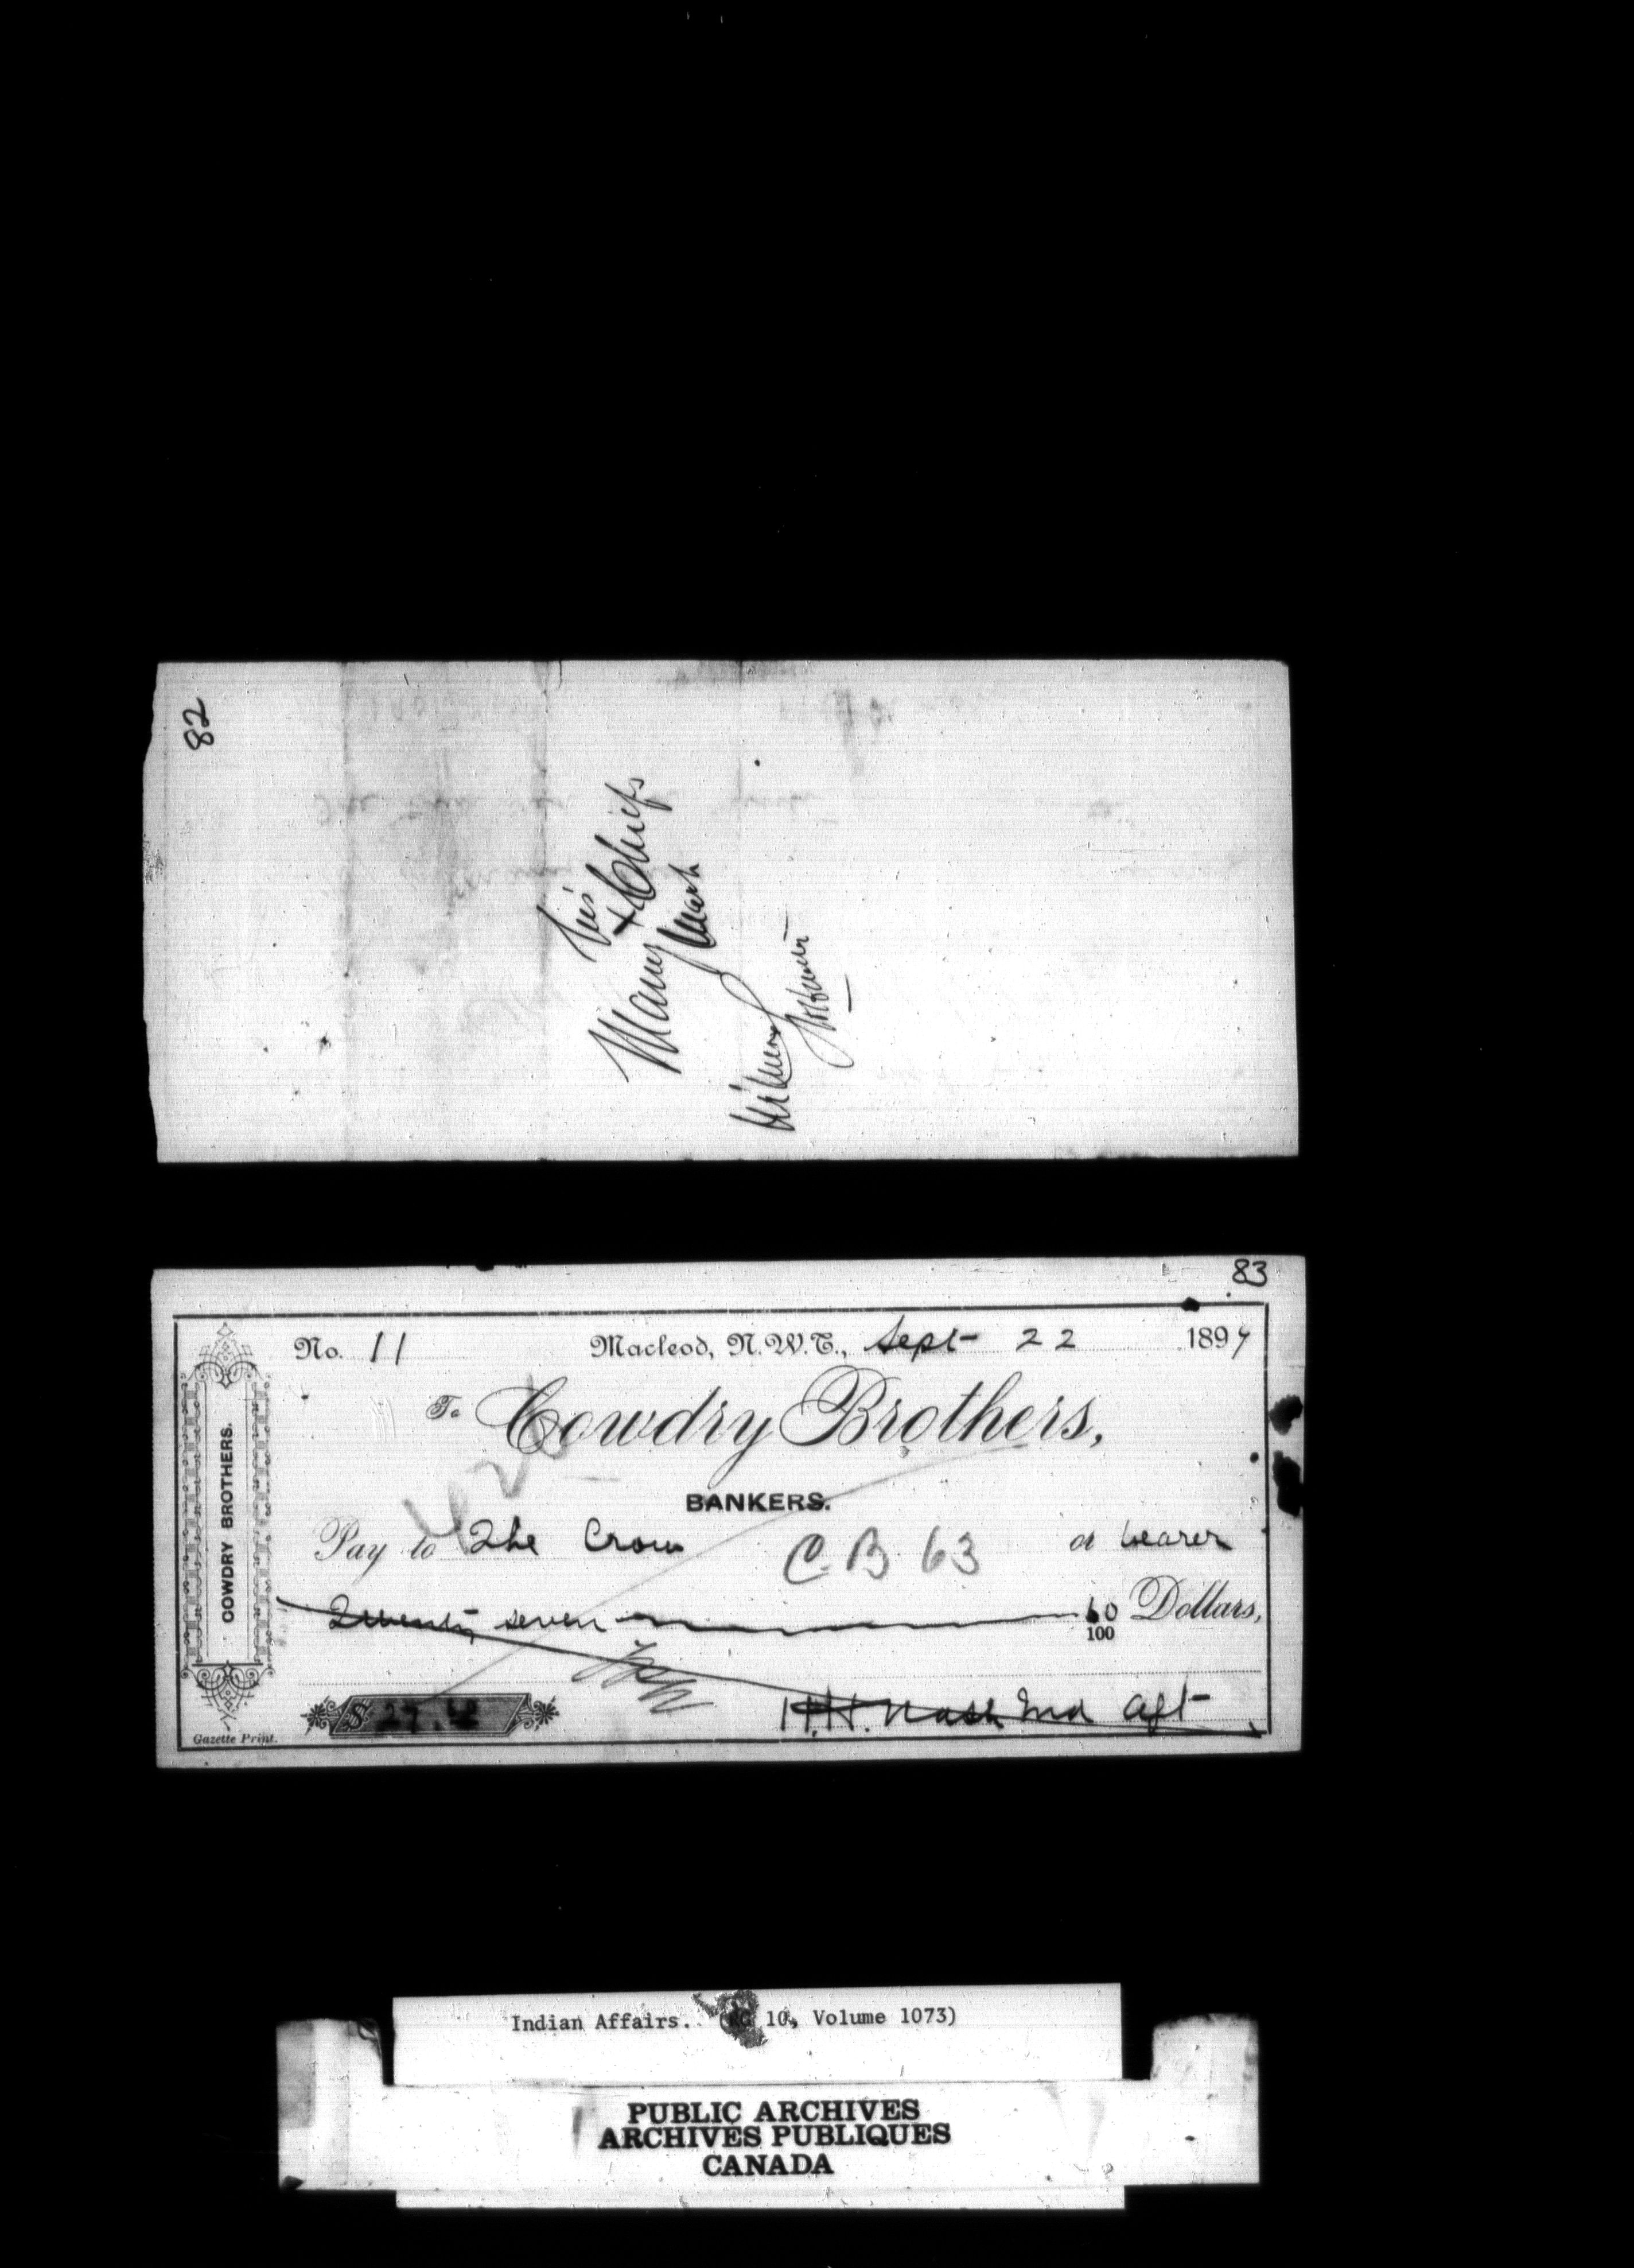 82
his
Many + Chiefs
mark
83
No. 11 Macleod, N.W.T., Sept 22 1897
To Cowdry Brothers,
BANKERS.
Pay to The Crow C.B 63 or bearer
Twenty seven 60/100 Dollars,
$ 27.60 H.H. Nash Ind Agt
COWDRY BROTHERS.
Gazette Print.
Indian Affairs. (RG 10, Volume 1073)
PUBLIC ARCHIVES
ARCHIVES PUBLIQUES
CANADA